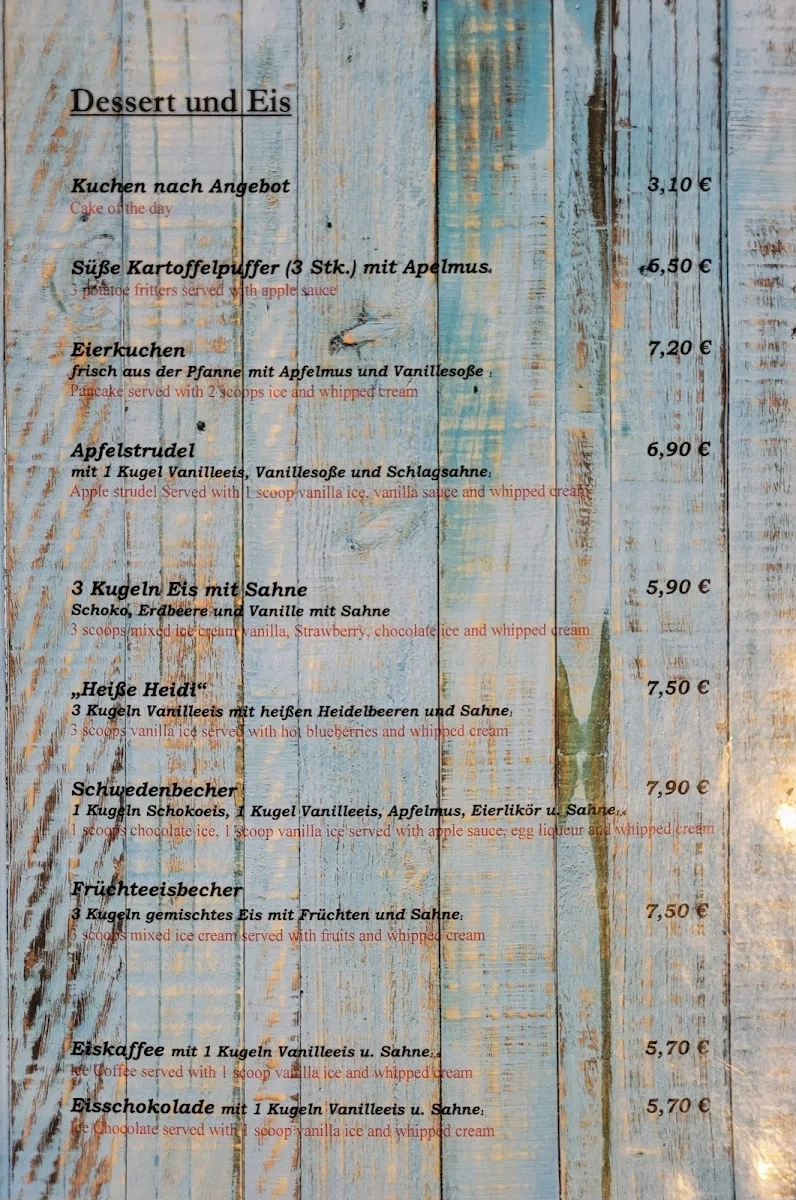 Dessert und Eis
Kuchen nach Angebot 3,10 €
Cake of the day
Süße Kartoffelpuffer (3 Stk.) mit Apelmus. 6,50 €
3 potatoe fritters served with apple sauce
Eierkuchen 7,20 €
frisch aus der Pfanne mit Apfelmus und Vanillesoße
Pancake served with 2 scoops ice and whipped cream
Apfelstrudel 6,90 €
mit 1 Kugel Vanilleeis, Vanillesoße und Schlagsahne
Apple strudel Served with 1 scoop vanilla ice, vanilla sauce and whipped cream
3 Kugeln Eis mit Sahne 5,90 €
Schoko, Erdbeere und Vanille mit Sahne
3 scoops mixed ice cream vanilla, Strawberry, chocolate ice and whipped cream
„Heiße Heidi“ 7,50 €
3 Kugeln Vanilleeis mit heißen Heidelbeeren und Sahne
3 scoops vanilla ice served with hot blueberries and whipped cream
Schwedenbecher 7,90 €
1 Kugeln Schokoeis, 1 Kugel Vanilleeis, Apfelmus, Eierlikör u. Sahne
1 scoops chocolate ice, 1 scoop vanilla ice served with apple sauce, egg liqueur and whipped cream
Früchteeisbecher
3 Kugeln gemischtes Eis mit Früchten und Sahne 7,50 €
3 scoops mixed ice cream served with fruits and whipped cream
Eiskaffee mit 1 Kugeln Vanilleeis u. Sahne 5,70 €
Ice Coffee served with 1 scoop vanilla ice and whipped cream
Eisschokolade mit 1 Kugeln Vanilleeis u. Sahne 5,70 €
Ice Chocolate served with 1 scoop vanilla ice and whipped cream